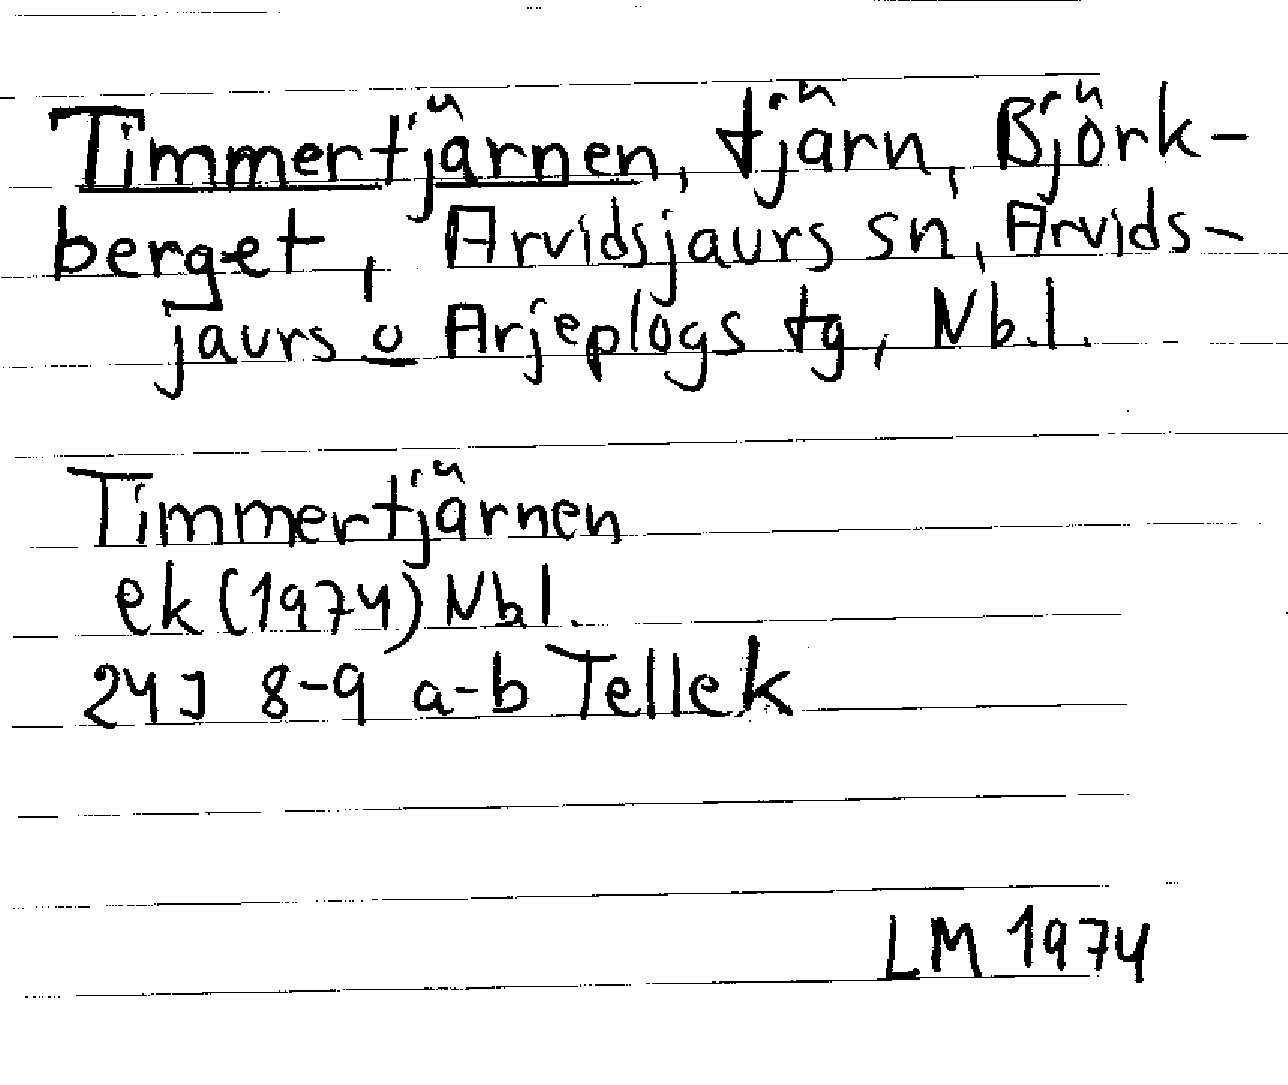 Timmertjärnen, tjärn, Björk-
berget, Arvidsjaurs sn, Arvids-
jaurs o Arjeplogs tg, Nb.l.
Timmertjärnen
ek (1974) Nbl.
24J 8-9 a-b Tellek
LM 1974